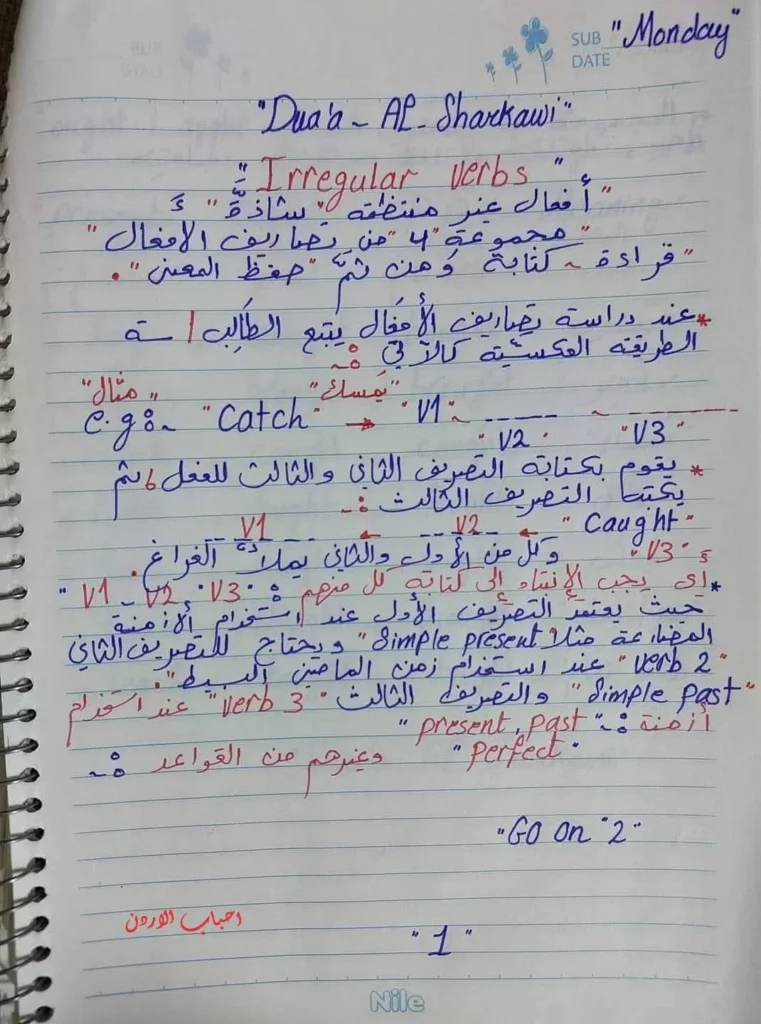 SUB "Monday"
DATE
"Dua'a - AL - Sharkawi"
"Irregular verbs"
"أفعال غير منتظمه "شاذةَّ" ءَ
"مجموعة "4" من تصاريف الافعال"
"قراءة ~ كتابة وَمن ثمَّ "حفظ المعنى".
*عند دراسة تصاريف الأفعَال يتبع الطَالِب/ـة
الطريقته العكسيّة كالآتي :~
"مثال" "يَمسك"
e.g:~ "Catch" → "V1~ ---- ~ ----
"V2" "V3"
* يقوم بكتابته التصريف الثاني والثالث للفعل، ثم
يكتب التصريف الثالث :~
V1 ← V2 ← "Caught"
ءَ "V3" وكل من الأول والثاني يملأَ الفراغ.
*إي يجب الإنتباه إلى كتابته كل منهم : "V1 - V2 - V3"
حيث يعتمدَ التصرّيف الأول عند استخدام الأزمنة
المضارعة مثلا "Simple present" ويحتاج للتصريف الثاني
"verb 2" عند استخدام زمن الماضي البسيط".
"Simple past" والتصريف الثالث "verb 3" عند استخدام
أزمنة :~ "present, past"
"perfect" وغيرهم من القواعد :~
"Go on "2"
احباب الاردن
"1"
Nile